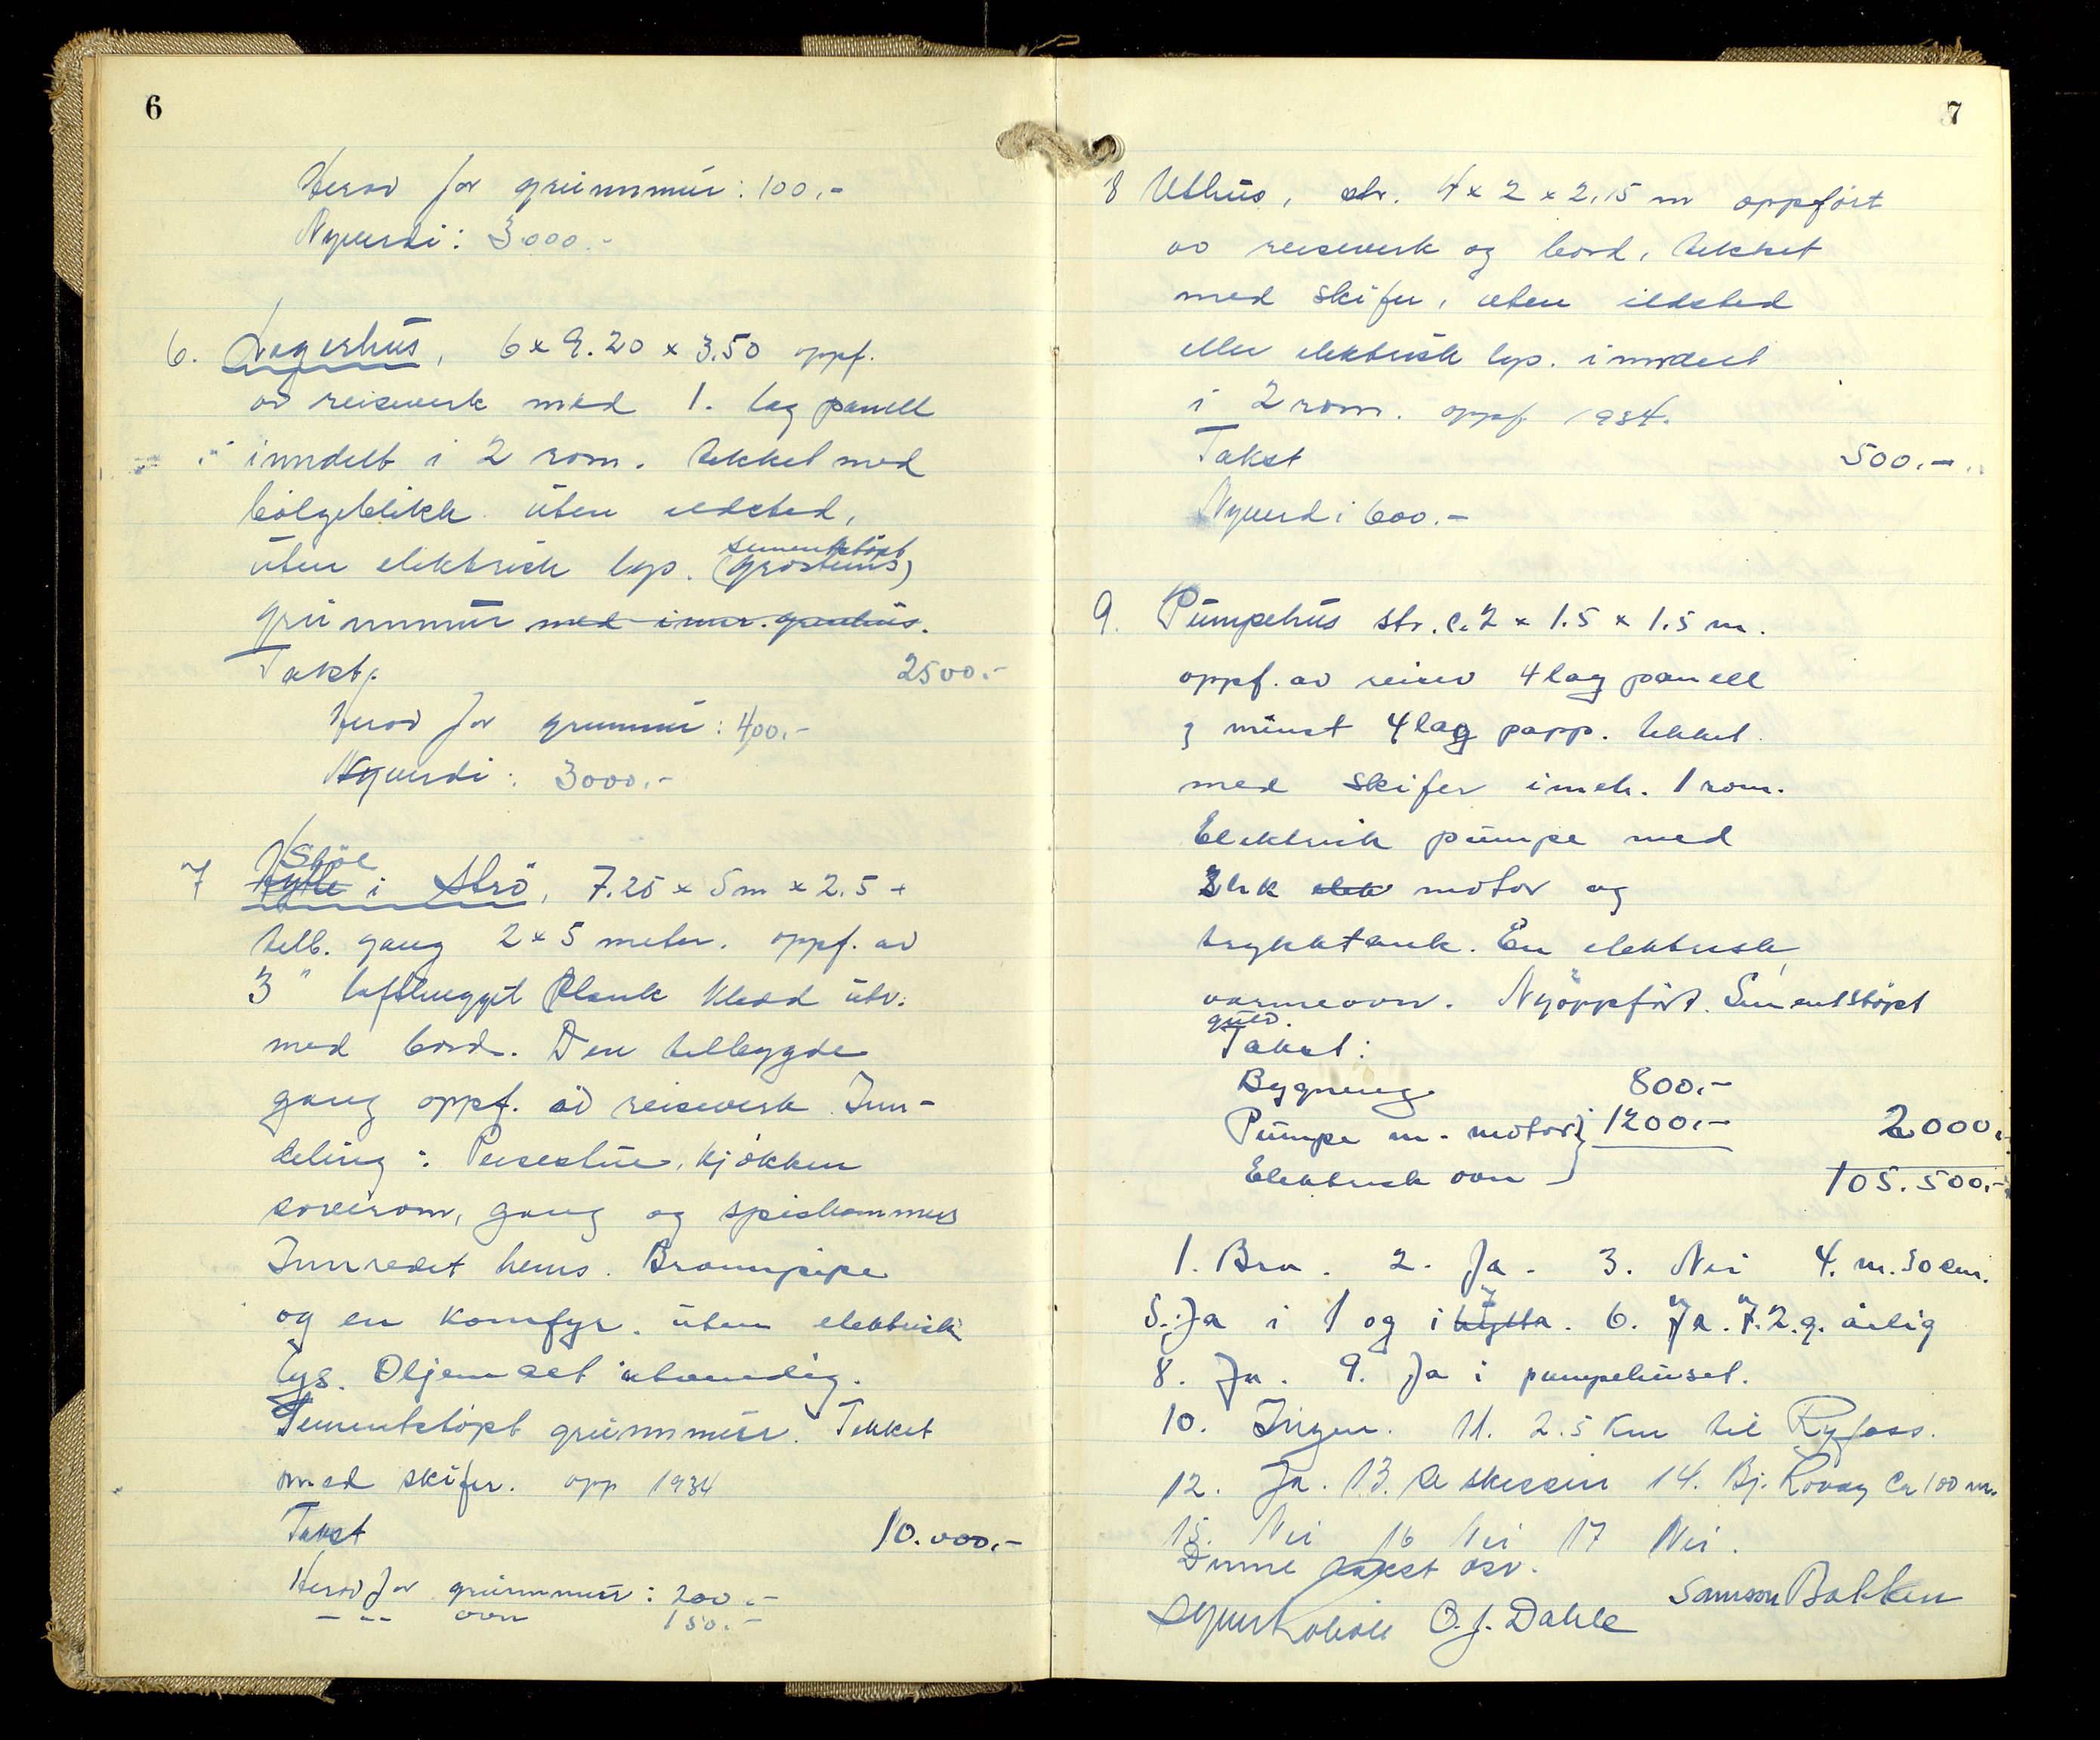 6
Herav for grunnmur: 100.-
Nyverdi: 3000.-
6. Lagerhus, 6 x 9.20 x 3.50 oppf.
av reisverk med 1. lag panell
inndelt i 2 rom. tekket med
bølgeblikk uten ildsted,
sementstøpt
uten elektrisk lys. (gråsteins)
grunnmur med innr. grunnhus.
Takst.
2500.-
Herav for grunnmur: 400.-
Nyverdi: 3000.-
Støl
7 Hytte i Strö, 7.25 x 5m x 2.5 +
tilb. gang 2 x 5 meter. oppf. av
3" lafthugget Plank kledd utv.
med bord. Den tilbygde
gang oppf. av reisverk. Inn-
deling: Peisestue, kjøkken
soverom, gang og spiskammers
Innredet hems. Brannpipe
og en komfyr. uten elektrisk
lys. Oljemalt utvendig.
Sementstøpt grunnmur. Tekket
med skifer. opp 1934
Takst
10.000.-
Herav for grunnmur: 200.-
— " — ovn 150.-
7
8 Uthus, str. 4 x 2 x 2,15 m oppført
av reisverk og bord, tekket
med skifer, uten ildsted
eller elektrisk lys. inndelt
i 2 rom. oppf. 1934.
Takst
500.-
Nyverdi 600.-
9. Pumpehus str. c. 2 x 1.5 x 1.5 m.
oppf. av reisv 4 lag panell
g minst 4 lag papp. tekket
med skifer inneh. 1 rom.
Elektrisk pumpe med
3 hk elek motor og
trykktank. En elektrisk
varmeovn. Nyoppført. Sementstøpt
gulv.
Takst:
Bygning 800.-
Pumpe m. motor} 1200.-
2000.-
Elektrisk ovn
105.500.-
1. Bra. 2. Ja. 3. Nei 4. m. 30 cm.
7
5. Ja i 1 og i hytta. 6. Ja. 7. 2. g. årlig
8. Ja. 9. Ja i pumpehuset.
10. Ingen. 11. 2.5 Km til Ryfoss.
12. Ja. 13. Se skissen 14. Bj. Lovag Ca 100 m.
15. Nei 16 Nei 17 Nei.
Denne takst osv.
Samson Bakken
O. J. Dahle